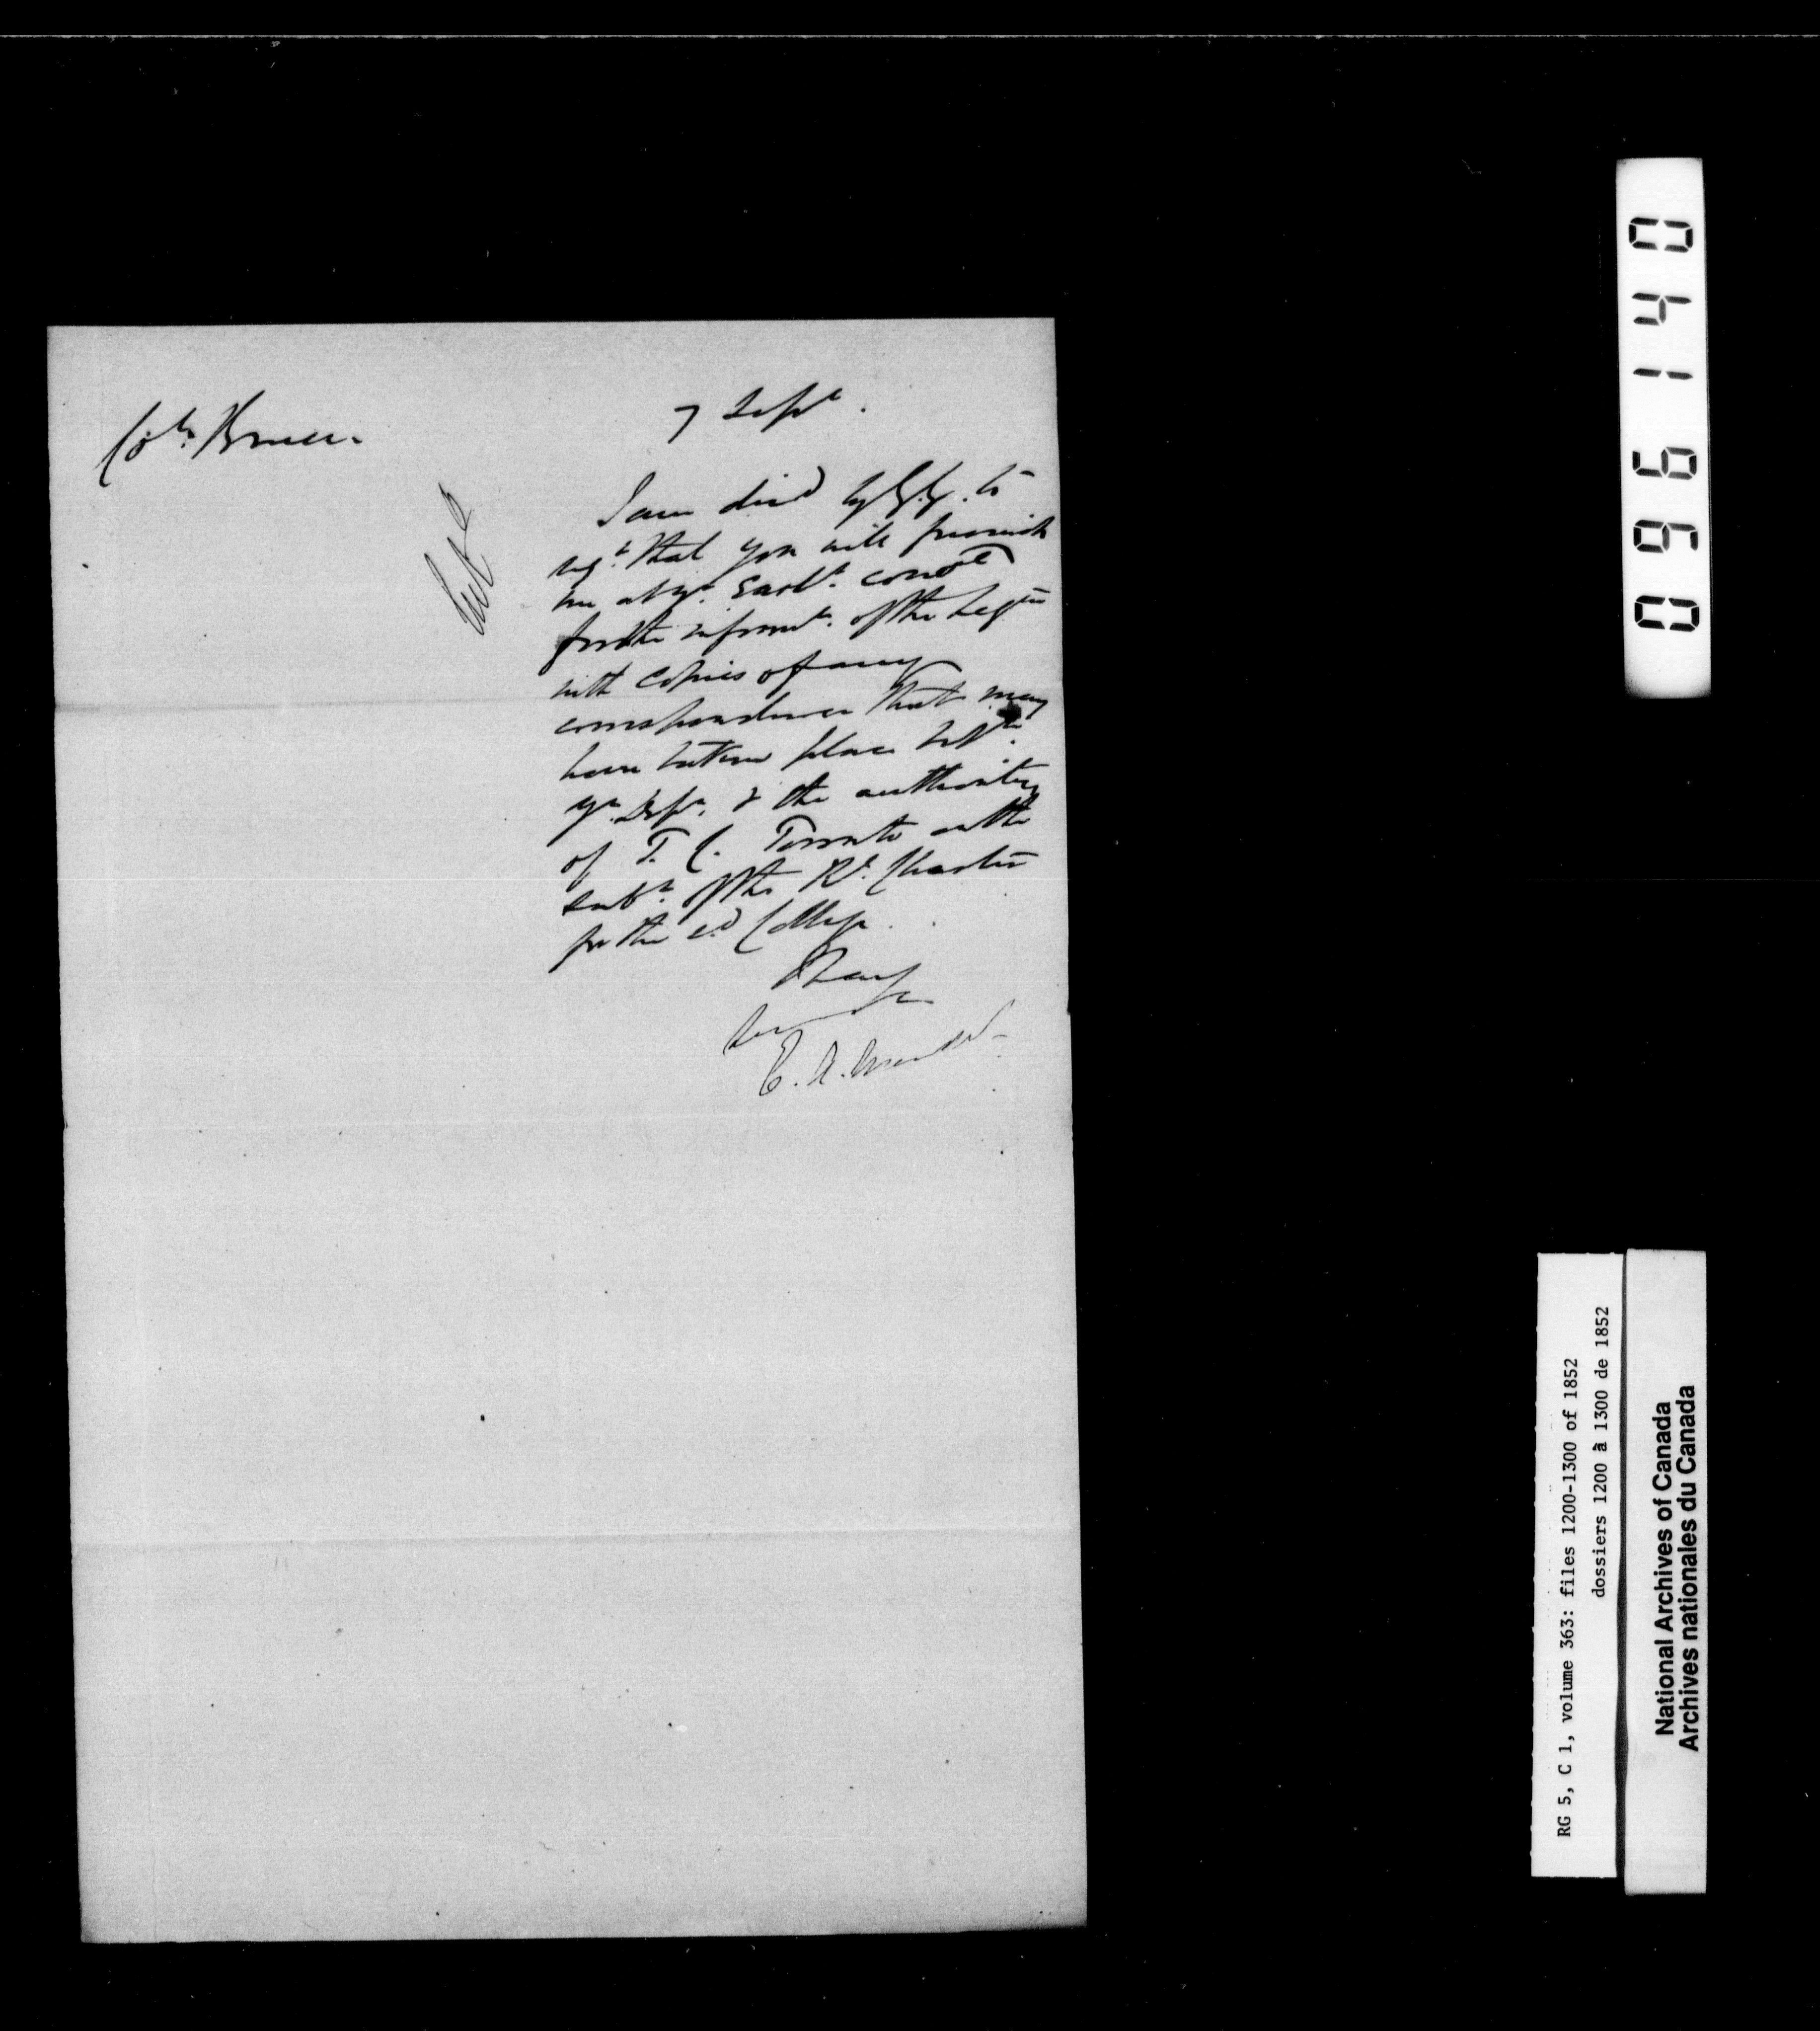 7 Sept.
Col. Bruce.
I am dird by G.G. to
reqt. that you will furnish
me at yr. earlt. conv.ce
for the informn. of the Leg.
with copies of any
correspondence that may
have taken place betn.
yr. Dept. & the authorities
of T. C. Toronto on the
subt. of the Rl. Charter
for the sd College.
E. A. Meredith
0 9 6 1 4 0
RG 5, C 1, volume 363: files 1200-1300 of 1852
dossiers 1200 à 1300 de 1852
National Archives of Canada
Archives nationales du Canada